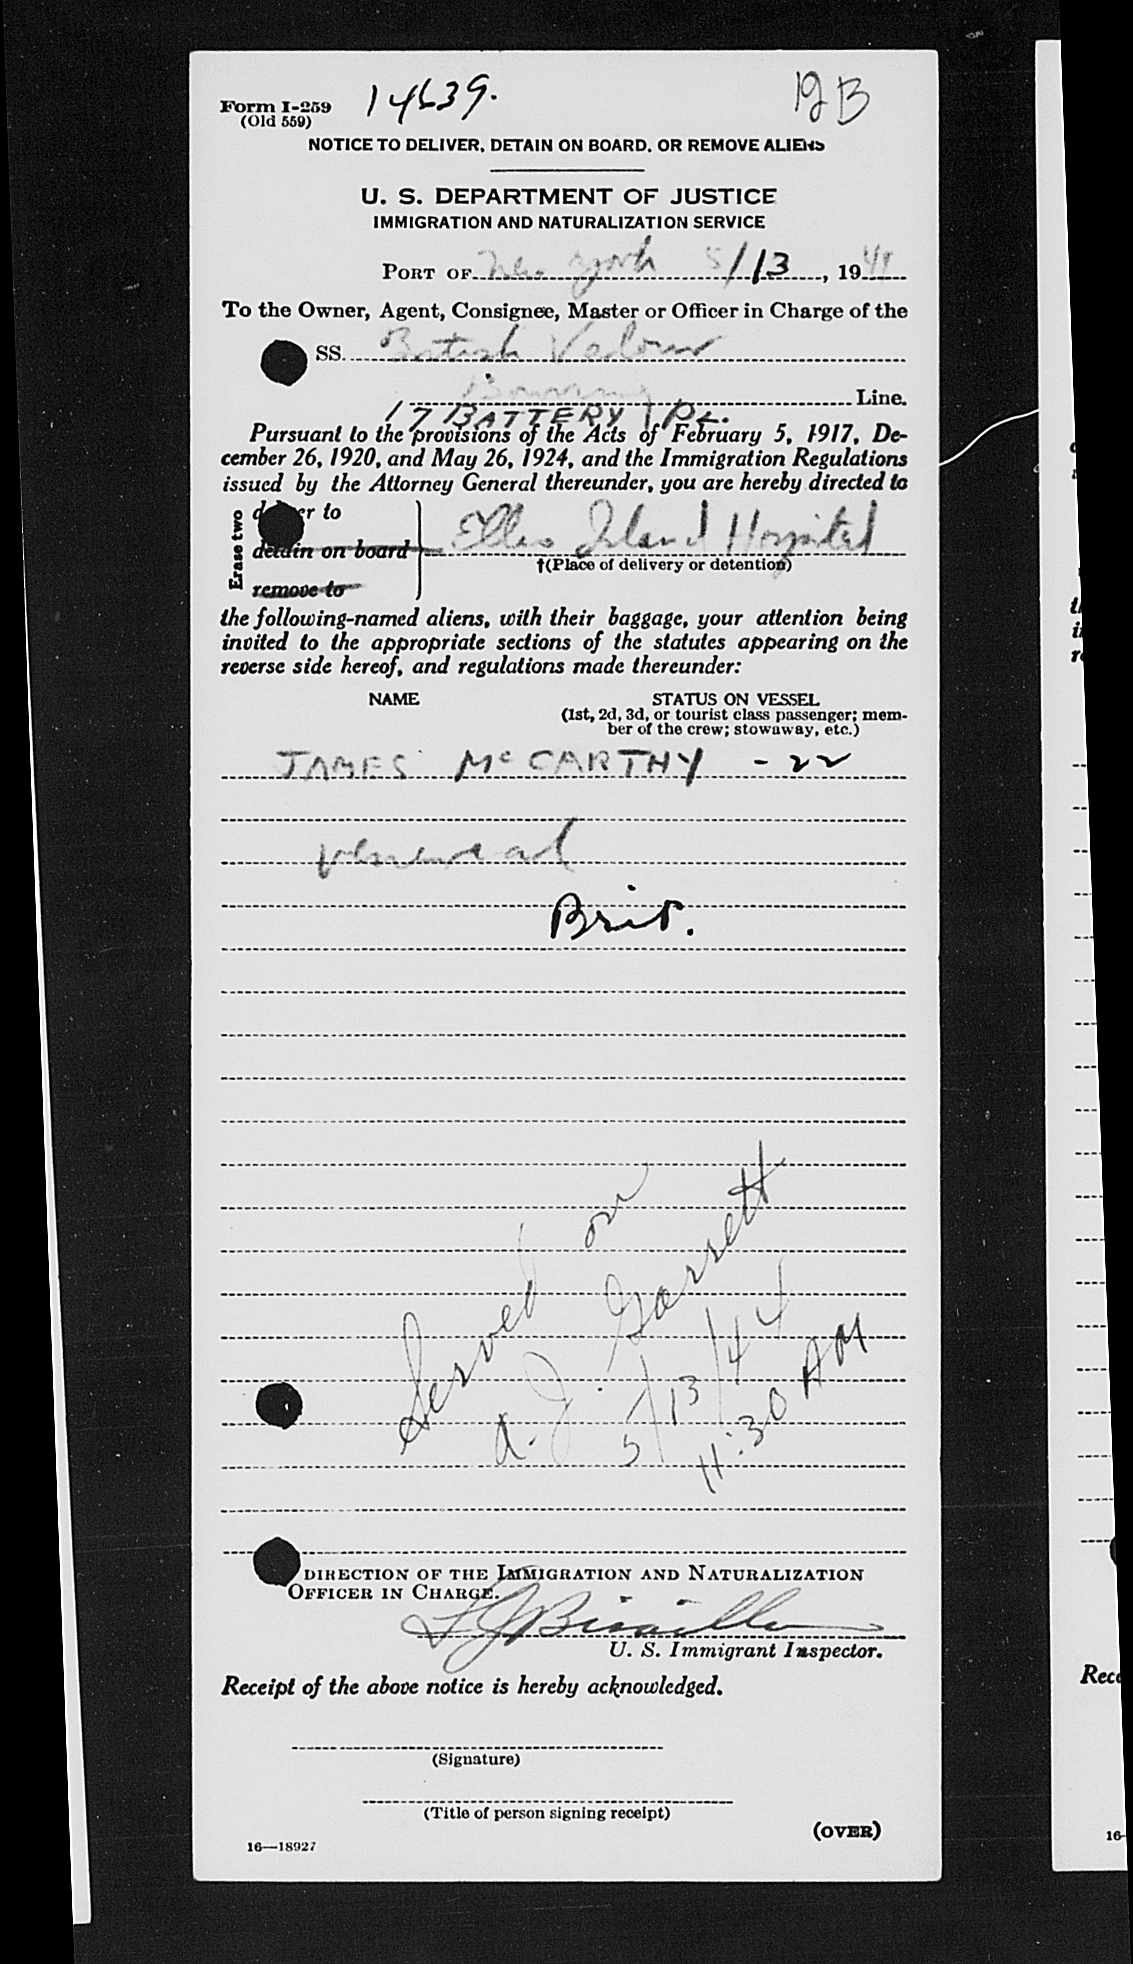 Form I-259
(Old 559)
14639.
NOTICE TO DELIVER, DETAIN ON BOARD, OR REMOVE ALIENS
U. S. DEPARTMENT OF JUSTICE
IMMIGRATION AND NATURALIZATION SERVICE
PORT OF New York 5/13, 19
To the Owner, Agent, Consignee, Master or Officer in Charge of the
SS. British
Line.
17 BATTERY PL.
Pursuant to the provisions of the Acts of February 5, 1917, De-
cember 26, 1920, and May 26, 1924, and the Immigration Regulations
issued by the Attorney General thereunder, you are hereby directed to
Erase two
to
detain on board
remove to
Ellis Island Hospital
†(Place of delivery or detention)
the following-named aliens, with their baggage, your attention being
invited to the appropriate sections of the statutes appearing on the
reverse side hereof, and regulations made thereunder:
NAME
STATUS ON VESSEL
(1st, 2d, 3d, or tourist class passenger; mem-
ber of the crew; stowaway, etc.)
JAMES McCARTHY - 22
venereal
Brit.
Served on
A. J. Garrett
5/13/44
11:30 AM
DIRECTION OF THE IMMIGRATION AND NATURALIZATION
OFFICER IN CHARGE.
U. S. Immigrant Inspector.
Receipt of the above notice is hereby acknowledged.
(Signature)
(Title of person signing receipt)
(OVER)
16—18927